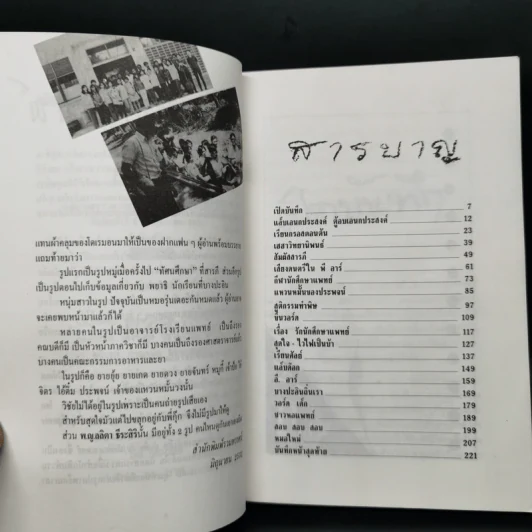 แทนผ้าคลุมของโดเรมอนมาให้เป็นของฝากแฟน ๆ ผู้อ่านพร้อม
แถมท้ายมาว่า
รูปแรกเป็นรูปหมู่เมื่อครั้งไป "ทัศนศึกษา" ที่สารภี ส่วนอีกรูป
เป็นรูปตอนไปเก็บข้อมูลเกี่ยวกับ พยาธิ นักเรียนที่บางปะอิน
หนุ่มสาวในรูป ปัจจุบันเป็นหมอรุ่นเดอะกันหมดแล้ว ผู้อ่าน
จะเคยพบหน้ามาแล้วก็ได้
หลายคนในรูปเป็นอาจารย์โรงเรียนแพทย์ เป็นถึง
คณบดีก็มี เป็นหัวหน้าภาควิชาก็มี บางคนเป็นถึงรองศาสตราจารย์
บางคนเป็นคณะกรรมการอาหารและยา
ในรูปก็คือ ยายอุ้ย ยายเกด ยายดวง ยายจันทร์ หมูกี้
จิตร ไอ้ติ๋ม ประพจน์ เจ้าของแหวนหมั้นวงนั้น
วิชัยไม่ได้อยู่ในรูปเพราะเป็นคนถ่ายรูปเสียเอง
สำหรับสุดใจมัวแต่ไปขลุกอยู่กับพี่กุ๊ก ซึ่งไม่มีรูปมาให้ดู
ส่วน พ.ญ.ลลิตา ธีระสิรินั้น มีอยู่ทั้ง ๒ รูป คนไหนดู
สำนักพิมพ์รวมทรรศน์
มิถุนายน
สารบาญ
เปิดบันทึก 7
แล็บเอนกประสงค์ ตู้อบเอนกประสงค์ 12
เรียนกรอสตอนต้น 23
เสสาวิทยานิพนธ์ 39
สัมผัสสารภี 49
เสียงดนตรีใน พี อาร์ 61
กีฬานักศึกษาแพทย์ 73
แหวนหมั้นของประพจน์ 85
สุติกรรมทำพิษ 97
ขึ้นวอร์ด 109
เรื่อง รักนักศึกษาแพทย์ 117
สุดใจ - ไวไฟเป็นบ้า 127
เรียนต๊อย 137
แล็บต๊อย 149
ดี. อาร์ 151
บางปะอินดินเรา 169
วอร์ด เด็ก 177
ชาวหอแพทย์ 189
สอบ สอบ สอบ 199
หมอใหม่ 207
บันทึกหน้าสุดท้าย 221